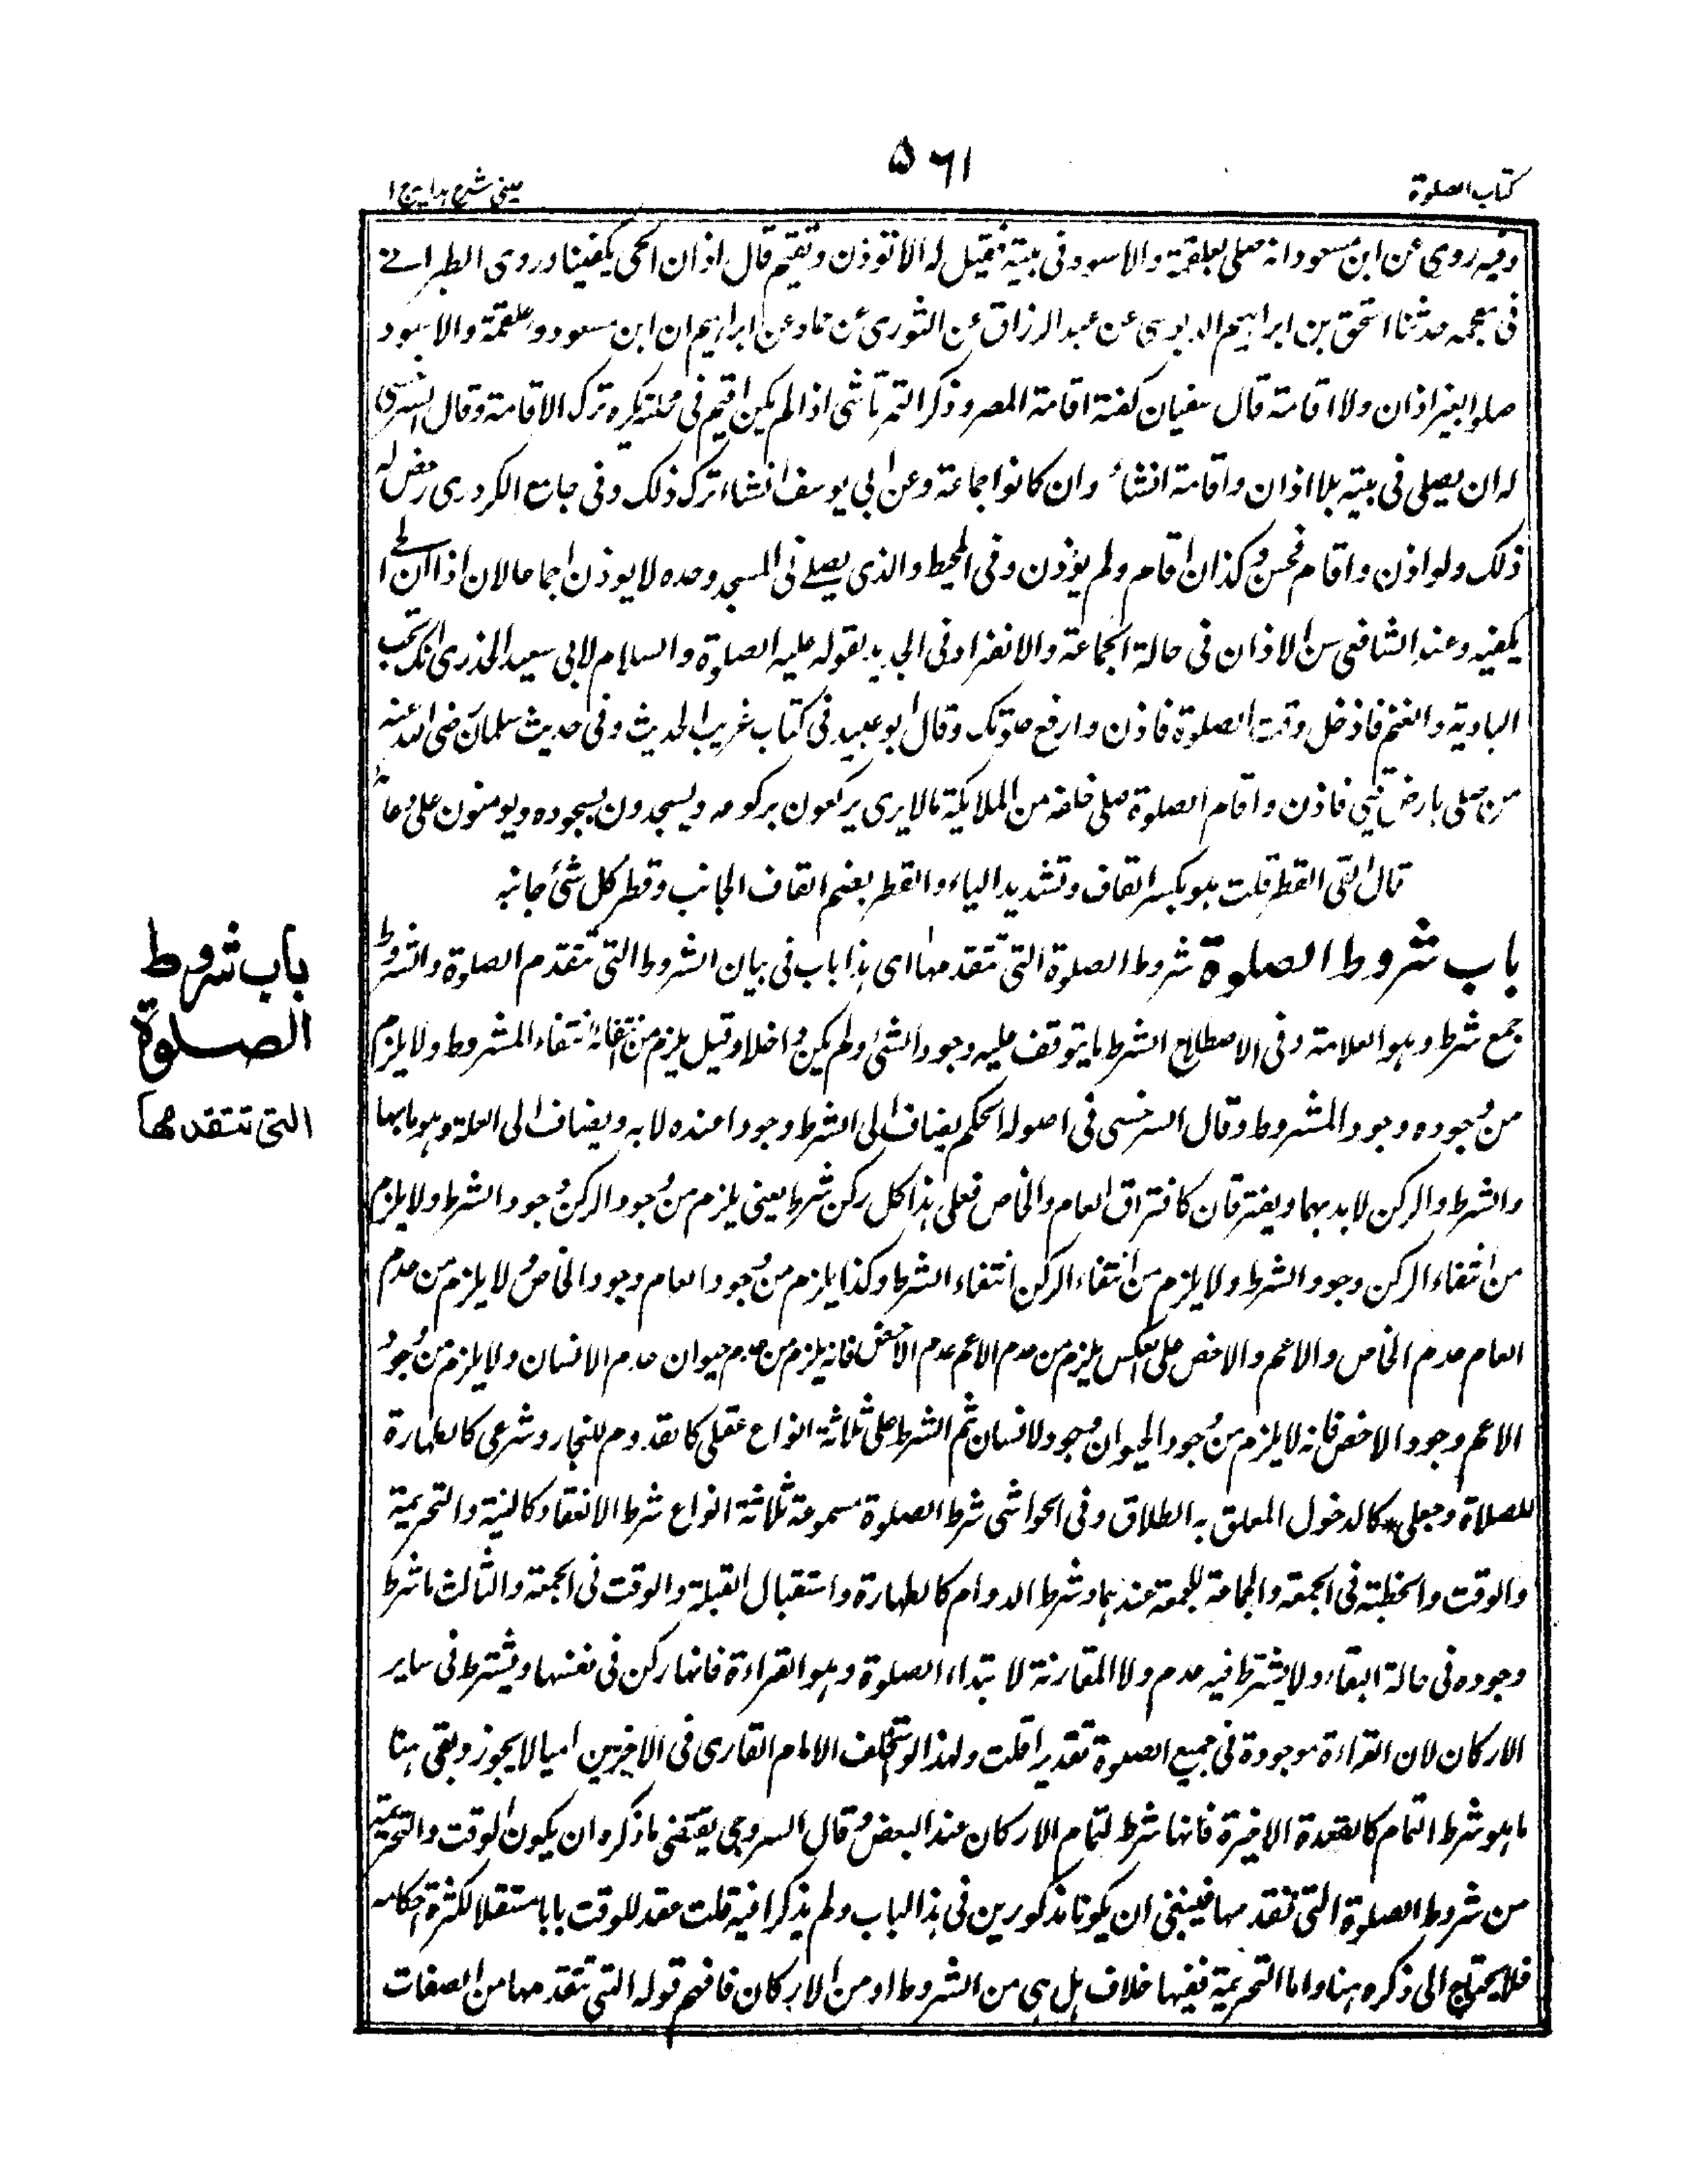 ۵۶۱
كتاب الصلوة
عيني شرح هدايه ج ۱
وفيه روي عن ابن مسعود انه صلى بعلقمة والاسود في بيته فقيل له الا تؤذن وتقيم قال اذان الحي يكفينا وروى الطبراني
في معجمه حدثنا اسحق بن ابراهيم الدبري عن عبد الرزاق عن الثوري عن حماد عن ابراهيم ان ابن مسعود وعلقمة والاسود
صلوا بغير اذان ولا اقامة قال سفيان كفته اقامة المصر وذكر التمرتاشي اذا لم يكن اقيم في محلته يكره ترك الاقامة وقال السرخسي
له ان يصلي في بيته بلا اذان واقامة انشاء وان كانوا جماعة وعن ابي يوسف انشاء ترك ذلك وفي جامع الكردري رخص له
ذلك ولو اذن واقام فحسن وكذا ان اقام ولم يؤذن وفي المحيط والذي يصلي في المسجد وحده لا يوذن اجماعا لان اذان الحي
يكفيه وعند الشافعي سن الاذان في حالة الجماعة والانفراد في الجديد بقوله عليه الصلوة والسلام لابي سعيد الخدري انك تحب
البادية والغنم فاذ دخل وقت الصلوة فاذن وارفع صوتك وقال ابو عبيد في كتاب غريب الحديث وفي حديث سلمان رضي الله عنه
من صلى بارض قي فاذن واقام الصلوة صلى خلفه من الملايكة مالا يرى يركعون بركوعه ويسجدون بسجوده ويومنون على دعائه
قال القي القطر قلت هو بكسر القاف وتشديد الياء والقطر بضم القاف الجانب وقطر كل شئ جانبه
باب شروط الصلوة شروط الصلوة التي تتقدمها اي هذا باب في بيان الشروط التي تتقدم الصلوة والشروط
جمع شرط وهو العلامة وفي الاصطلاح الشرط ما يتوقف عليه وجود الشئ ولم يكن داخلا وقيل يلزم من انتفائه انتفاء المشروط ولا يلزم
من وجوده وجود المشروط وقال السرخسي في اصوله الحكم يضاف الى الشرط وجودا عنده لا به ويضاف الى العلة وجوبا بها
والشرط والركن لا بد بهما ويفترقان كافتراق العام والخاص فعلى هذا كل ركن شرط يعني يلزم من وجود الركن وجود الشرط ولا يلزم
من انتفاء الركن وجود الشرط ولا يلزم من انتفاء الركن انتفاء الشرط وكذا يلزم من وجود العام وجود الخاص ولا يلزم من عدم
العام عدم الخاص والاعم والاخص على العكس يلزم من عدم الاعم عدم الاخص فانه يلزم من عدم حيوان عدم الانسان ولا يلزم من وجود
الاعم وجود الاخص فانه لا يلزم من وجود الحيوان وجود لانسان ثم الشرط على ثلاثة انواع عقلي كالقدوم للنجار وشرعي كالطهارة
للصلاة وجعلي كالدخول المعلق به الطلاق وفي الحواشي شرط الصلوة مسموعة ثلاثة انواع شرط الانعقاد كالنية والتحريمة
والوقت والخطبة في الجمعة والجماعة للجمعة عندهما وشرط الدوام كالطهارة واستقبال القبلة والوقت في الجمعة والثالث ما شرط
وجوده في حالة البقاء ولا يشترط فيه عدم ولا المقارنة لا بتداء الصلوة وهو القراءة فانها ركن في نفسها ويشترط في ساير
الاركان لان القراءة موجودة في جميع الصلوة تقديرا قلت ولهذا لو استخلف الامام القاري في الاخريين اميا لا يجوز وبقي هنا
ما هو شرط التمام كالقعدة الاخيرة فانها شرط لتمام الاركان عند البعض وقال السروجي يقتضي ما ذكره ان يكون الوقت والتحريمة
من شروط الصلوة التي تتقدمها فينبغي ان يكونا مذكورين في هذا الباب ولم يذكرا فيه قلت عقد للوقت بابا مستقلا لكثرة احكامه
فلا يحتاج الى ذكره هنا واما التحريمة ففيها خلاف هل هي من الشروط او من الاركان فافهم قوله التي تتقدمها من الصفات
باب شروط
الصلوة
التي تتقدمها